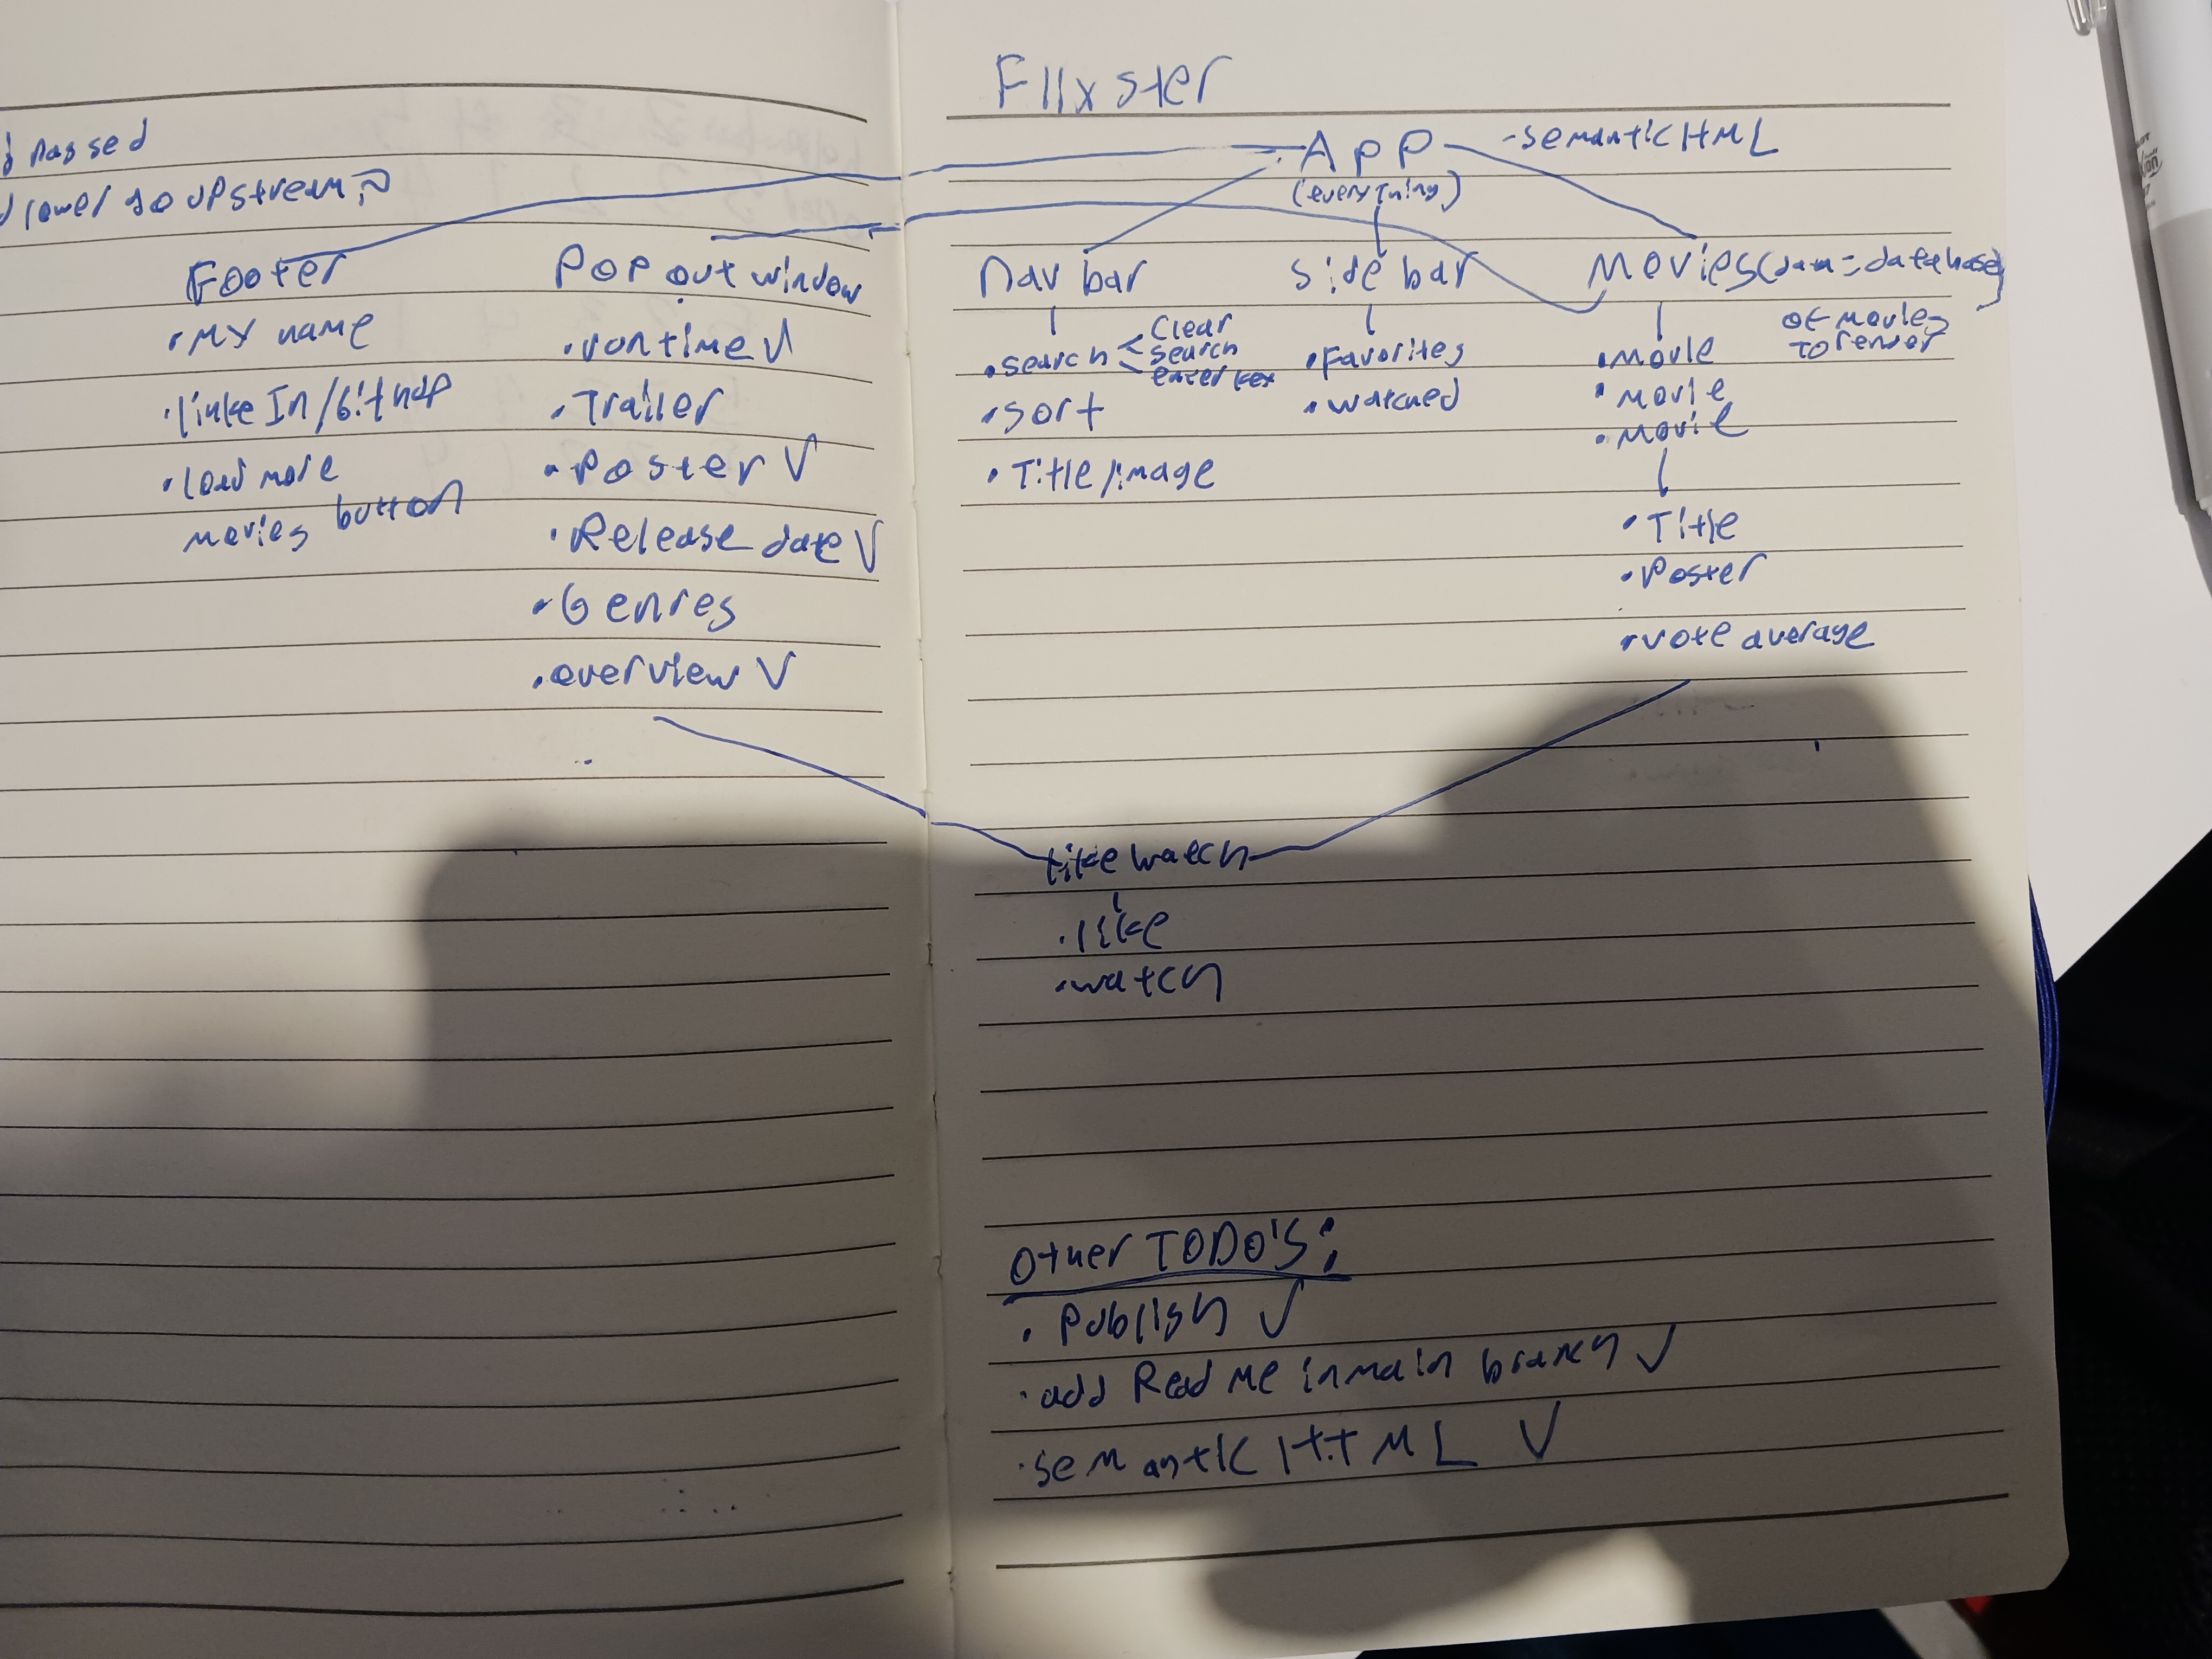 passed
upstream?
Footer
• My name
• linke In/Github
• load more
movies button
Pop out window
• runtime ✓
• Trailer
• Poster ✓
• Release date ✓
• Genres
• overview ✓
Flixster
App
(everything)
- semantic HTML
Nav bar
• search < Clear
search
enter key
• sort
• Title/image
Side bar
• Favorites
• watched
Movies (data = database)
of movies
to render
• movie
• movie
• movie
• Title
• Poster
• vote average
like watch
• like
• watch
Other TODO's:
• Publish ✓
• add Read me in main branch ✓
• semantic HTML ✓